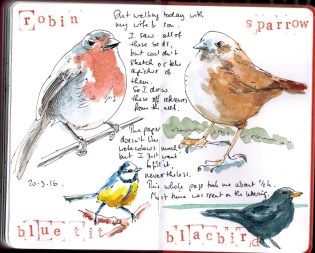 robin
sparrow
Out walking today with
my wife & son.
I saw all of
these birds,
but couldn't
sketch or take
a picture of
them.
So I drew
these off references
from the net.
This paper
doesn't like
watercolours much
but I just want
to fill it,
nevertheless.
This whole page took me about 1/2 h.
Most time was spent on the lettering.
20.3.16.
blue tit
blacbird